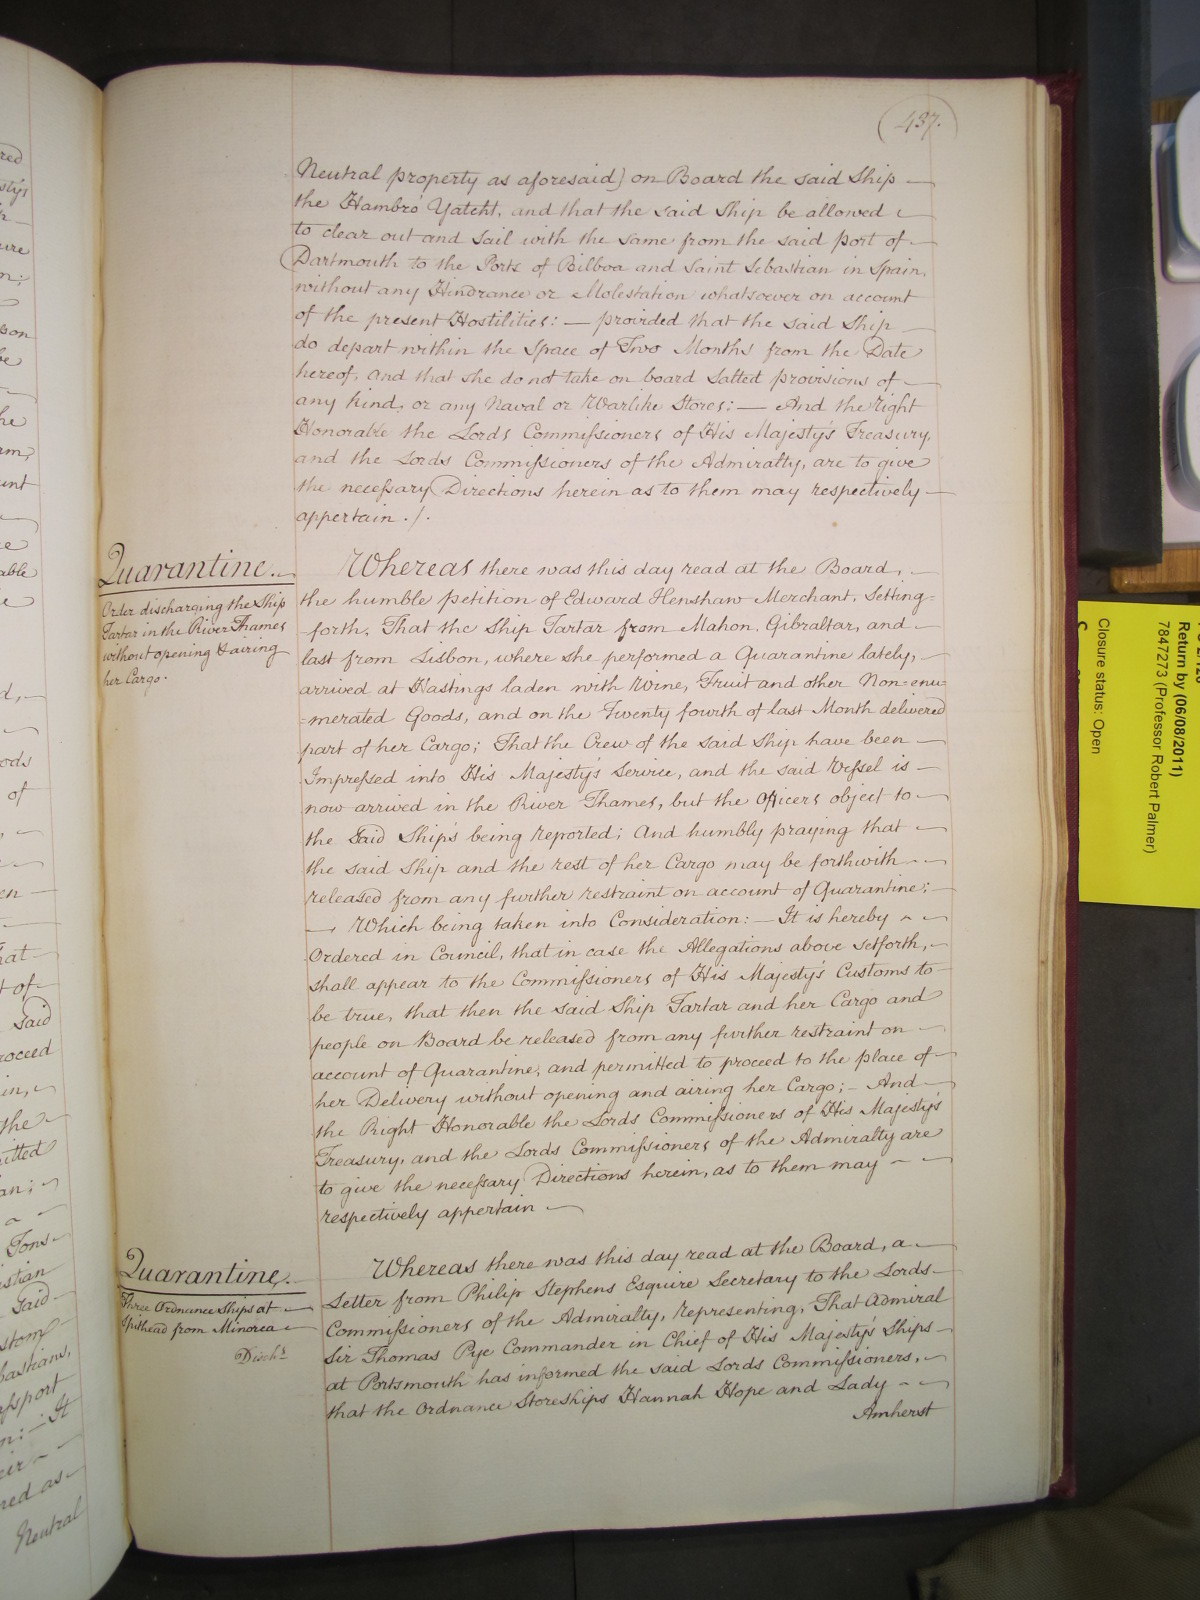 437.
Neutral property as aforesaid) on Board the said Ship
the Hambro' Yatcht, and that the said Ship be allowed
to clear out and Sail with the same from the said port of
Dartmouth to the Ports of Bilboa and Saint Sebastian in Spain,
without any Hindrance or Molestation whatsoever on account
of the present Hostilities: — provided that the said Ship
do depart within the Space of Two Months from the Date
hereof, and that she do not take on board Salted provisions of
any kind, or any Naval or Warlike Stores; — And the Right
Honorable the Lords Commissioners of His Majesty's Treasury,
and the Lords Commissioners of the Admiralty, are to give
the necessary Directions herein as to them may respectively
appertain ./.
Quarantine.
Order discharging the Ship
Tartar in the River Thames
without opening & airing
her Cargo.
Whereas there was this day read at the Board,
the humble petition of Edward Henshaw Merchant, Setting
forth, That the Ship Tartar from Mahon, Gibraltar, and
last from Lisbon, where she performed a Quarantine lately,
arrived at Hastings laden with Wine, Fruit and other Non=enu=
=merated Goods, and on the Twenty fourth of last Month delivered
part of her Cargo; That the Crew of the said Ship have been
Impressed into His Majesty's Service, and the said Vessel is
now arrived in the River Thames, but the Officers object to
the Said Ship's being reported; And humbly praying that
the said Ship and the rest of her Cargo may be forthwith
released from any further restraint on account of Quarantine;
— Which being taken into Consideration: — It is hereby
Ordered in Council, that in case the Allegations above setforth,
shall appear to the Commissioners of His Majesty's Customs to
be true, that then the said Ship Tartar and her Cargo and
people on Board be released from any further restraint on
account of Quarantine, and permitted to proceed to the place of
her Delivery without opening and airing her Cargo; — And
the Right Honorable the Lords Commissioners of His Majesty's
Treasury, and the Lords Commissioners of the Admiralty are
to give the necessary Directions herein, as to them may
respectively appertain —
Quarantine.
Three Ordnance Ships at
Spithead from Minorca
Disch'd
Whereas there was this day read at the Board, a
Letter from Philip Stephens Esquire Secretary to the Lords
Commissioners of the Admiralty, Representing, That Admiral
Sir Thomas Pye Commander in Chief of His Majesty's Ships
at Portsmouth has informed the said Lords Commissioners,
that the Ordnance Storeships Hannah Hope and Lady
Amherst
Return by (06/08/2011)
7847273 (Professor Robert Palmer)
Closure status: Open